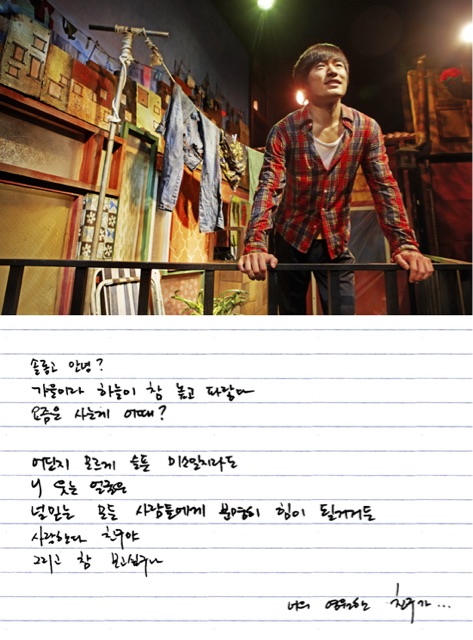 솔롱고 안녕?
가을이라 하늘이 참 높고 파랗다
요즘은 사는게 어때?
어딘지 모르게 슬픈 미소일지라도
니 웃는 얼굴은
널 아는 모든 사람들에게 분명히 힘이 될거거든
사랑한다 친구야
그리고 참 보고싶구나
너의 영원한 친구가...